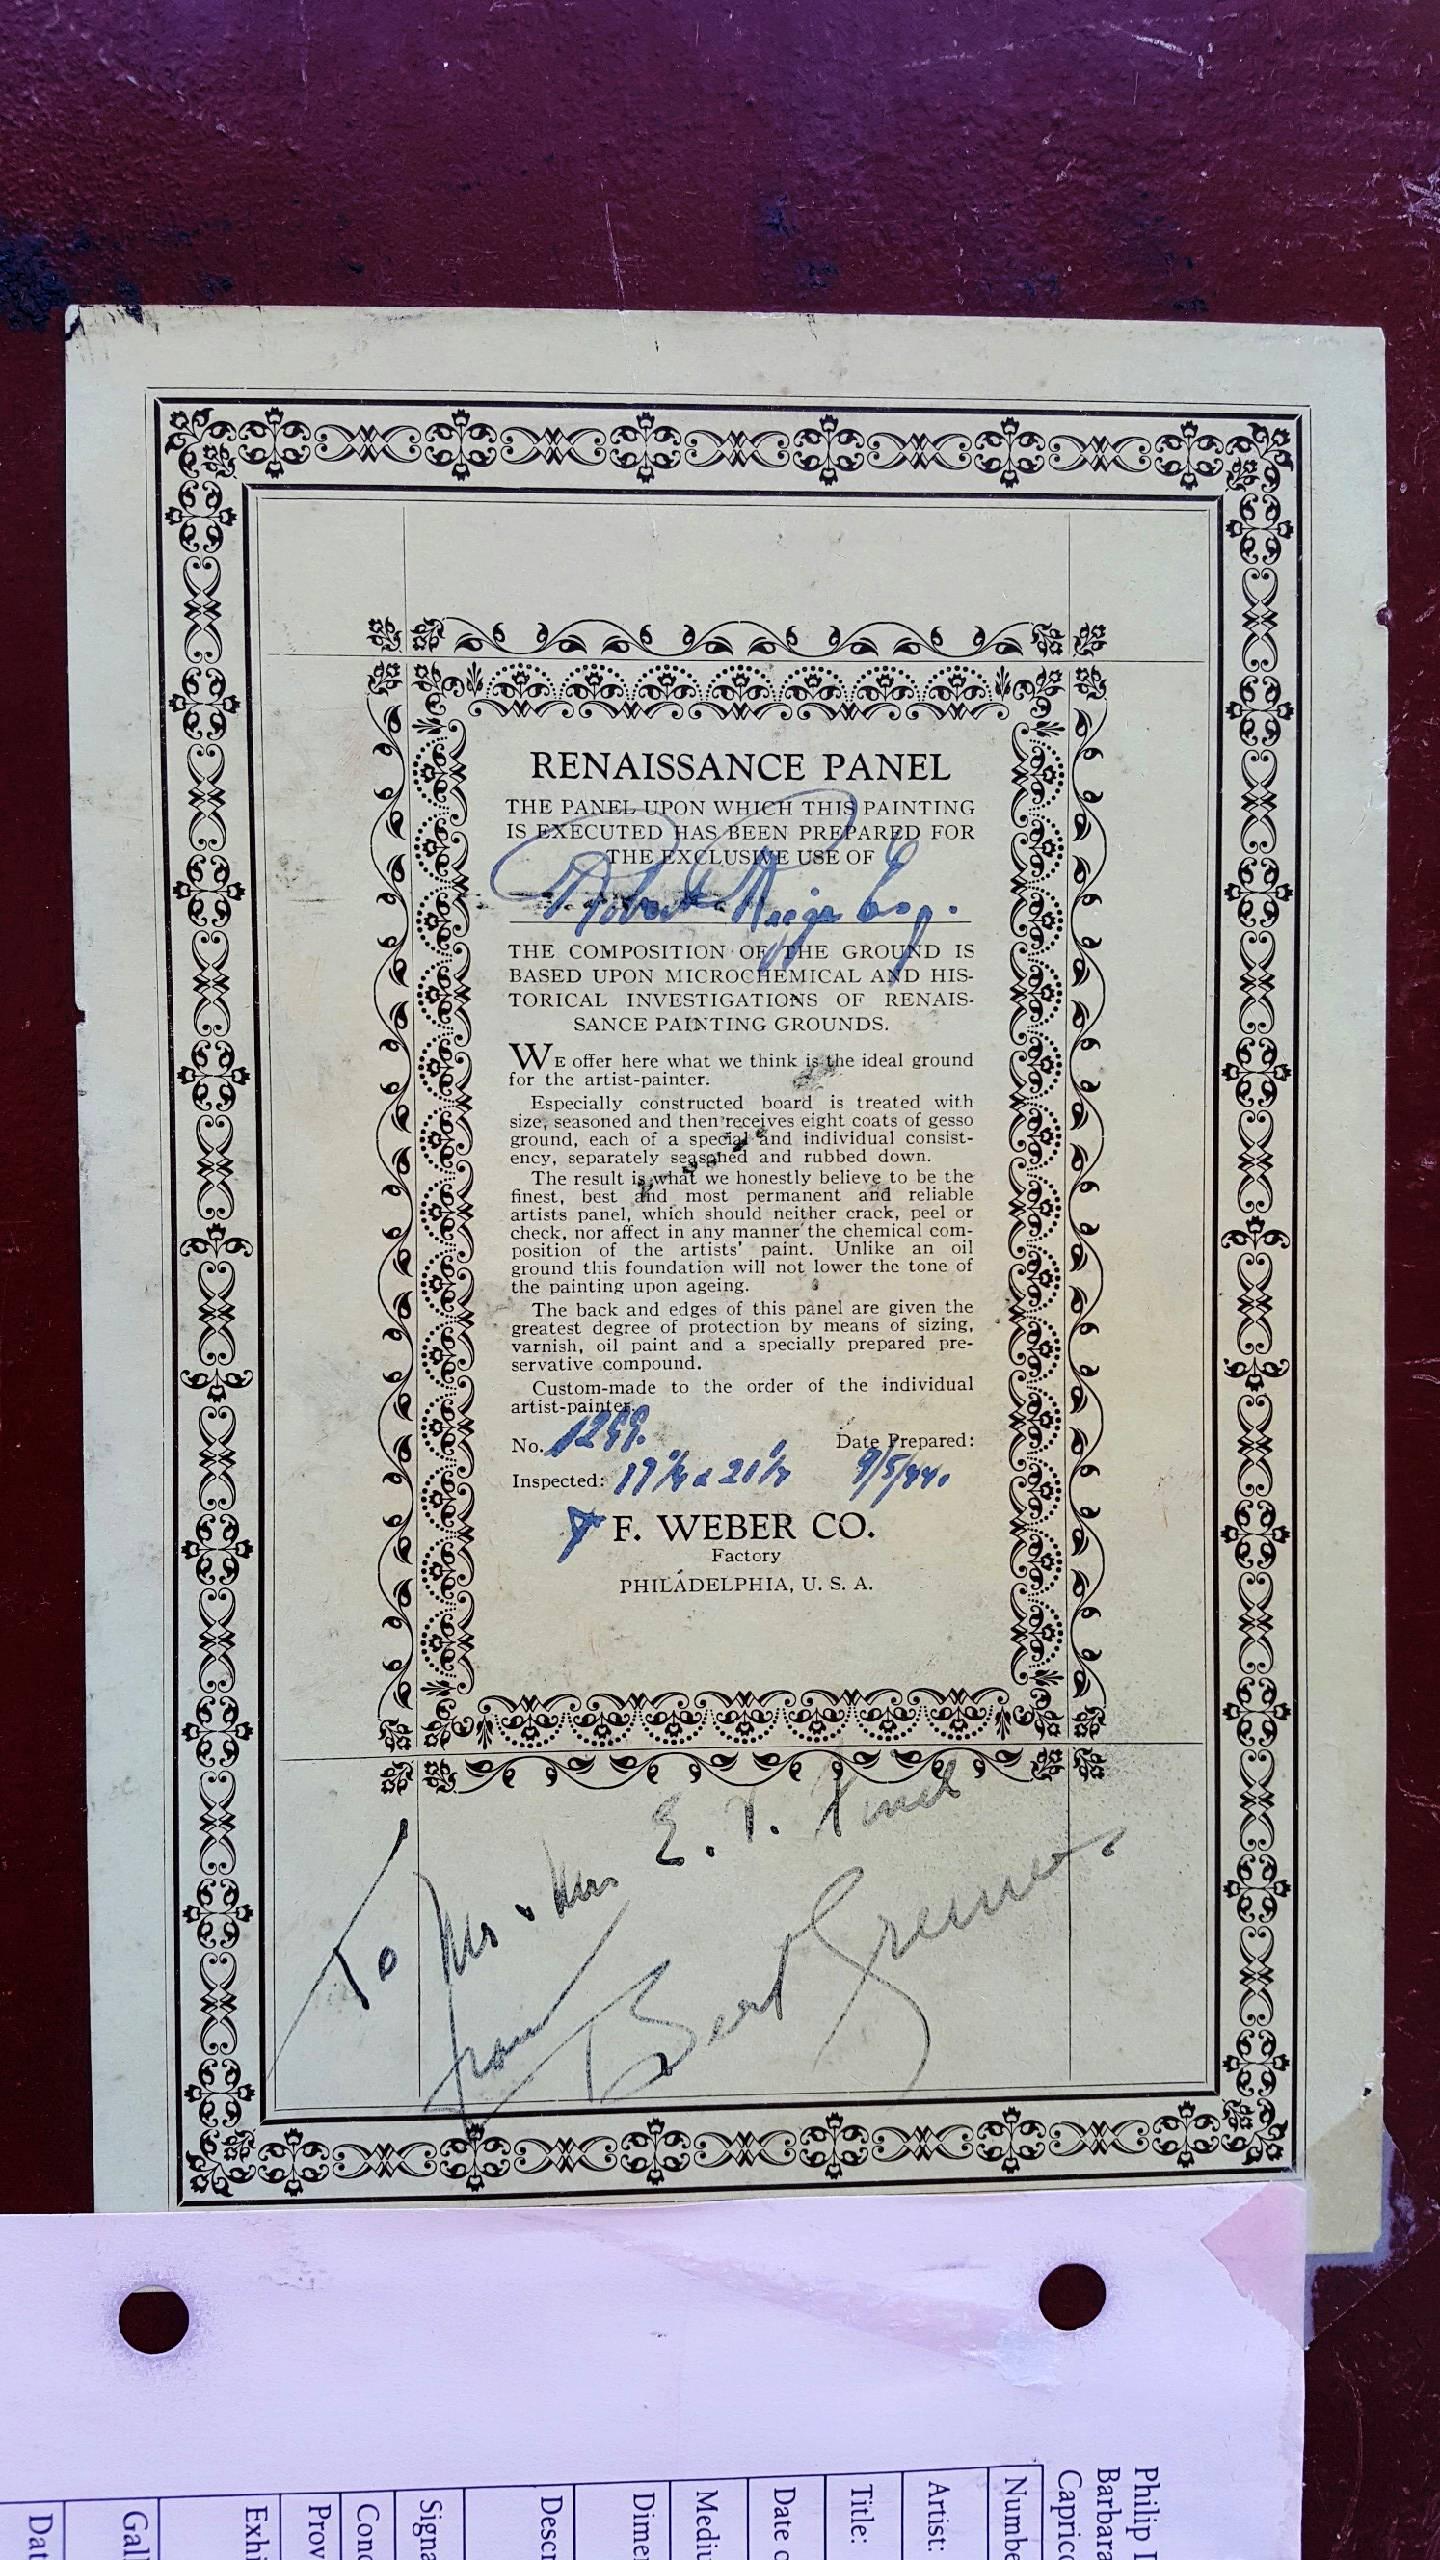 RENAISSANCE PANEL
THE PANEL UPON WHICH THIS PAINTING
IS EXECUTED HAS BEEN PREPARED FOR
THE EXCLUSIVE USE OF
Robert Esq.
THE COMPOSITION OF THE GROUND IS
BASED UPON MICROCHEMICAL AND HIS-
TORICAL INVESTIGATIONS OF RENAIS-
SANCE PAINTING GROUNDS.
WE offer here what we think is the ideal ground
for the artist-painter.
Especially constructed board is treated with
size, seasoned and then receives eight coats of gesso
ground, each of a special and individual consist-
ency, separately seasoned and rubbed down.
The result is what we honestly believe to be the
finest, best and most permanent and reliable
artists panel, which should neither crack, peel or
check, nor affect in any manner the chemical com-
position of the artists' paint. Unlike an oil
ground this foundation will not lower the tone of
the painting upon ageing.
The back and edges of this panel are given the
greatest degree of protection by means of sizing,
varnish, oil paint and a specially prepared pre-
servative compound.
Custom-made to the order of the individual
artist-painter.
No. 1299. Date Prepared:
Inspected: 9/5/44.
F. WEBER CO.
Factory
PHILADELPHIA, U. S. A.
To Mr & Mrs E. V.
from Bert
Philip
Barbara
Capric
Numbe
Artist:
Title:
Date
Mediu
Dimen
Descr
Signa
Conc
Prov
Exhi
Gall
Dat